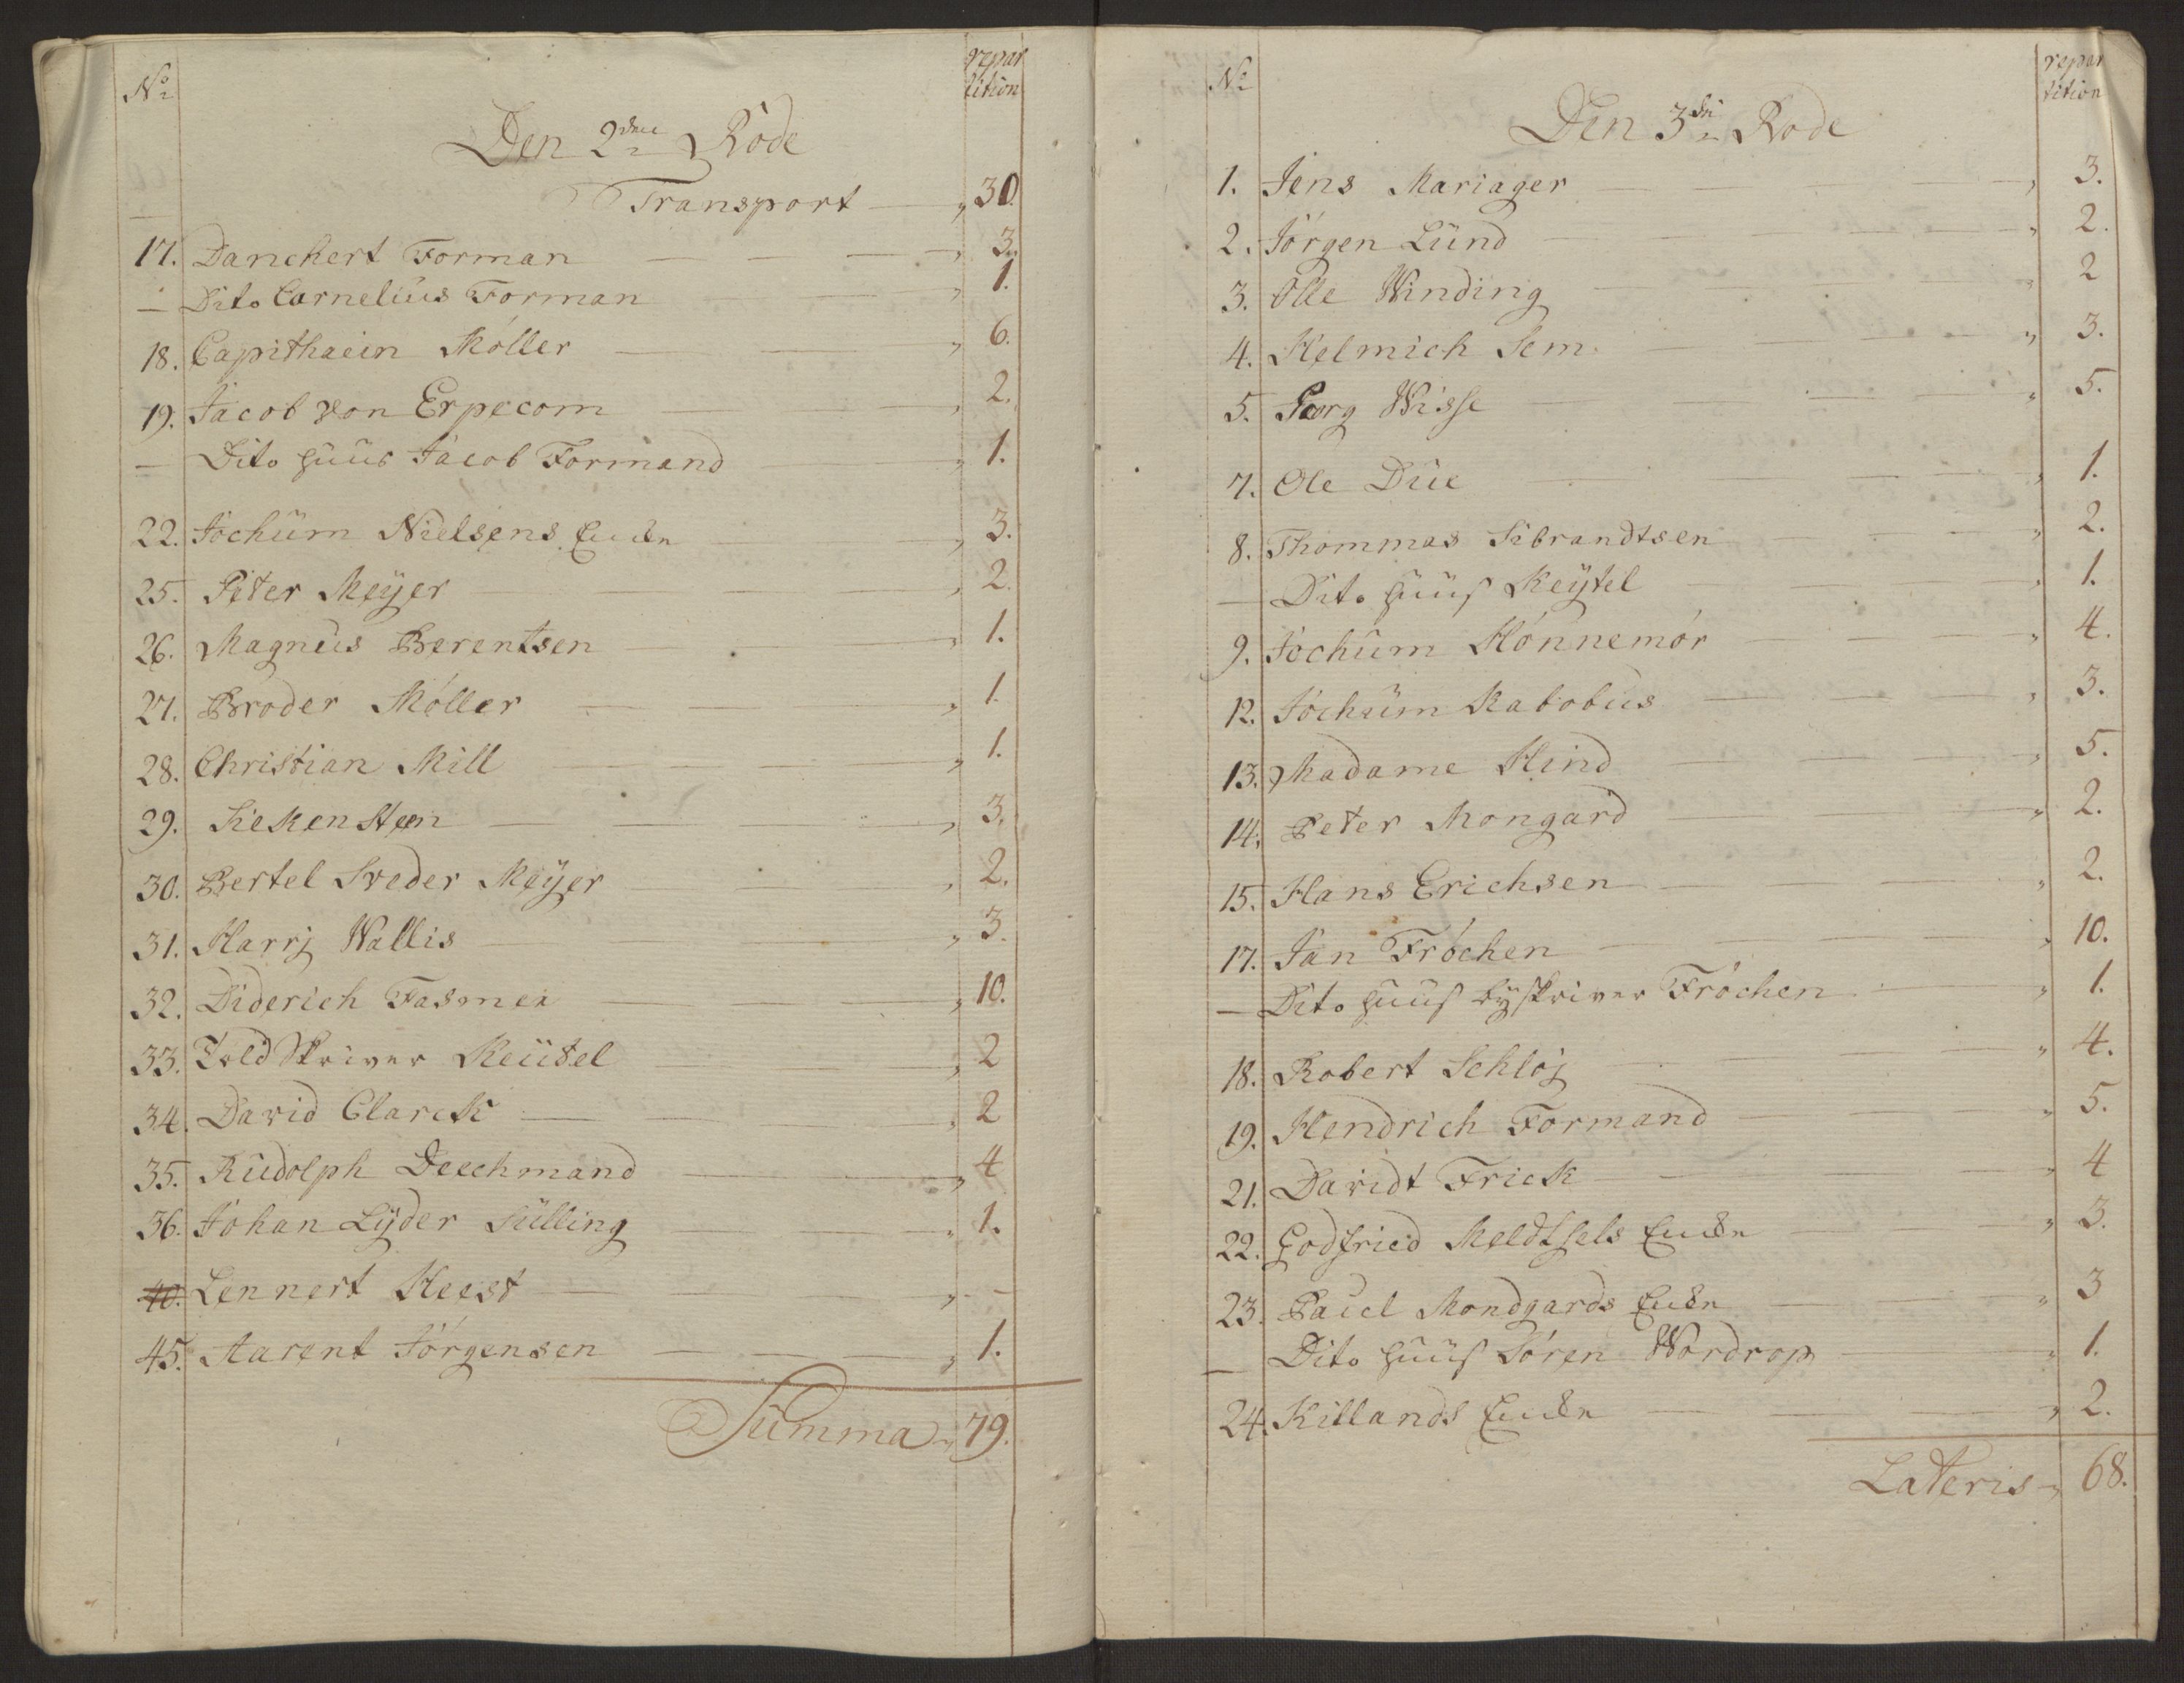 No
repar
tition
Den 2den Rode
Transport 30.
17. Danchert Forman 3.
— Dito Cornelius Forman 1.
18. Capithaein Möller 6.
19. Jacob von Erpecom 2.
— Dito Huus Jacob Formand 1.
22. Jochum Nielsens Encke 3.
25. Peter Meÿer 2.
26. Magnus Berentsen 1.
27. Broder Möller 1.
28. Christian Mill 1.
29. Siekensteen 3.
30. Bertel Sveder Meÿer 2.
31. Harrj Wallis 3.
32. Diderich Fasmer 10.
33. Told Skriver Keütel 2
34. David Clarck 2
35. Rudolph Deechmand 4
36. Johan Lÿder Sülling 1.
40. Lennert Heest -
45. Aarent Jörgensen 1.
Summa 79.
No
repar
tition
Den 3die Rode
1. Jens Mariager 3.
2. Jörgen Lund 2.
3. Olle Winding 2
4. Helmich Sem 3.
5. Georg Wisse 5.
7. Ole Due 1.
8. Thommas Sibrandtsen 2.
— Dito Huus Keÿtel 1.
9. Jochum Hönnemör 4.
12. Jochum Rabobus 3.
13. Madame Hind 5.
14. Peter Mongard 2.
15. Hans Erichsen 2.
17. Jan Fröchen 10.
— Dito Huus Bÿskriver Fröchen 1.
18. Robert Schlöj 4.
19. Hendrich Formand 5.
21. Davidt Frick 4
22. Godfried Meldtsels Encke 3.
23. Pauel Mondgards Encke 3
— Dito Huus Sören Wordrop 1.
24. Killands Encke 2.
Lateris 68.